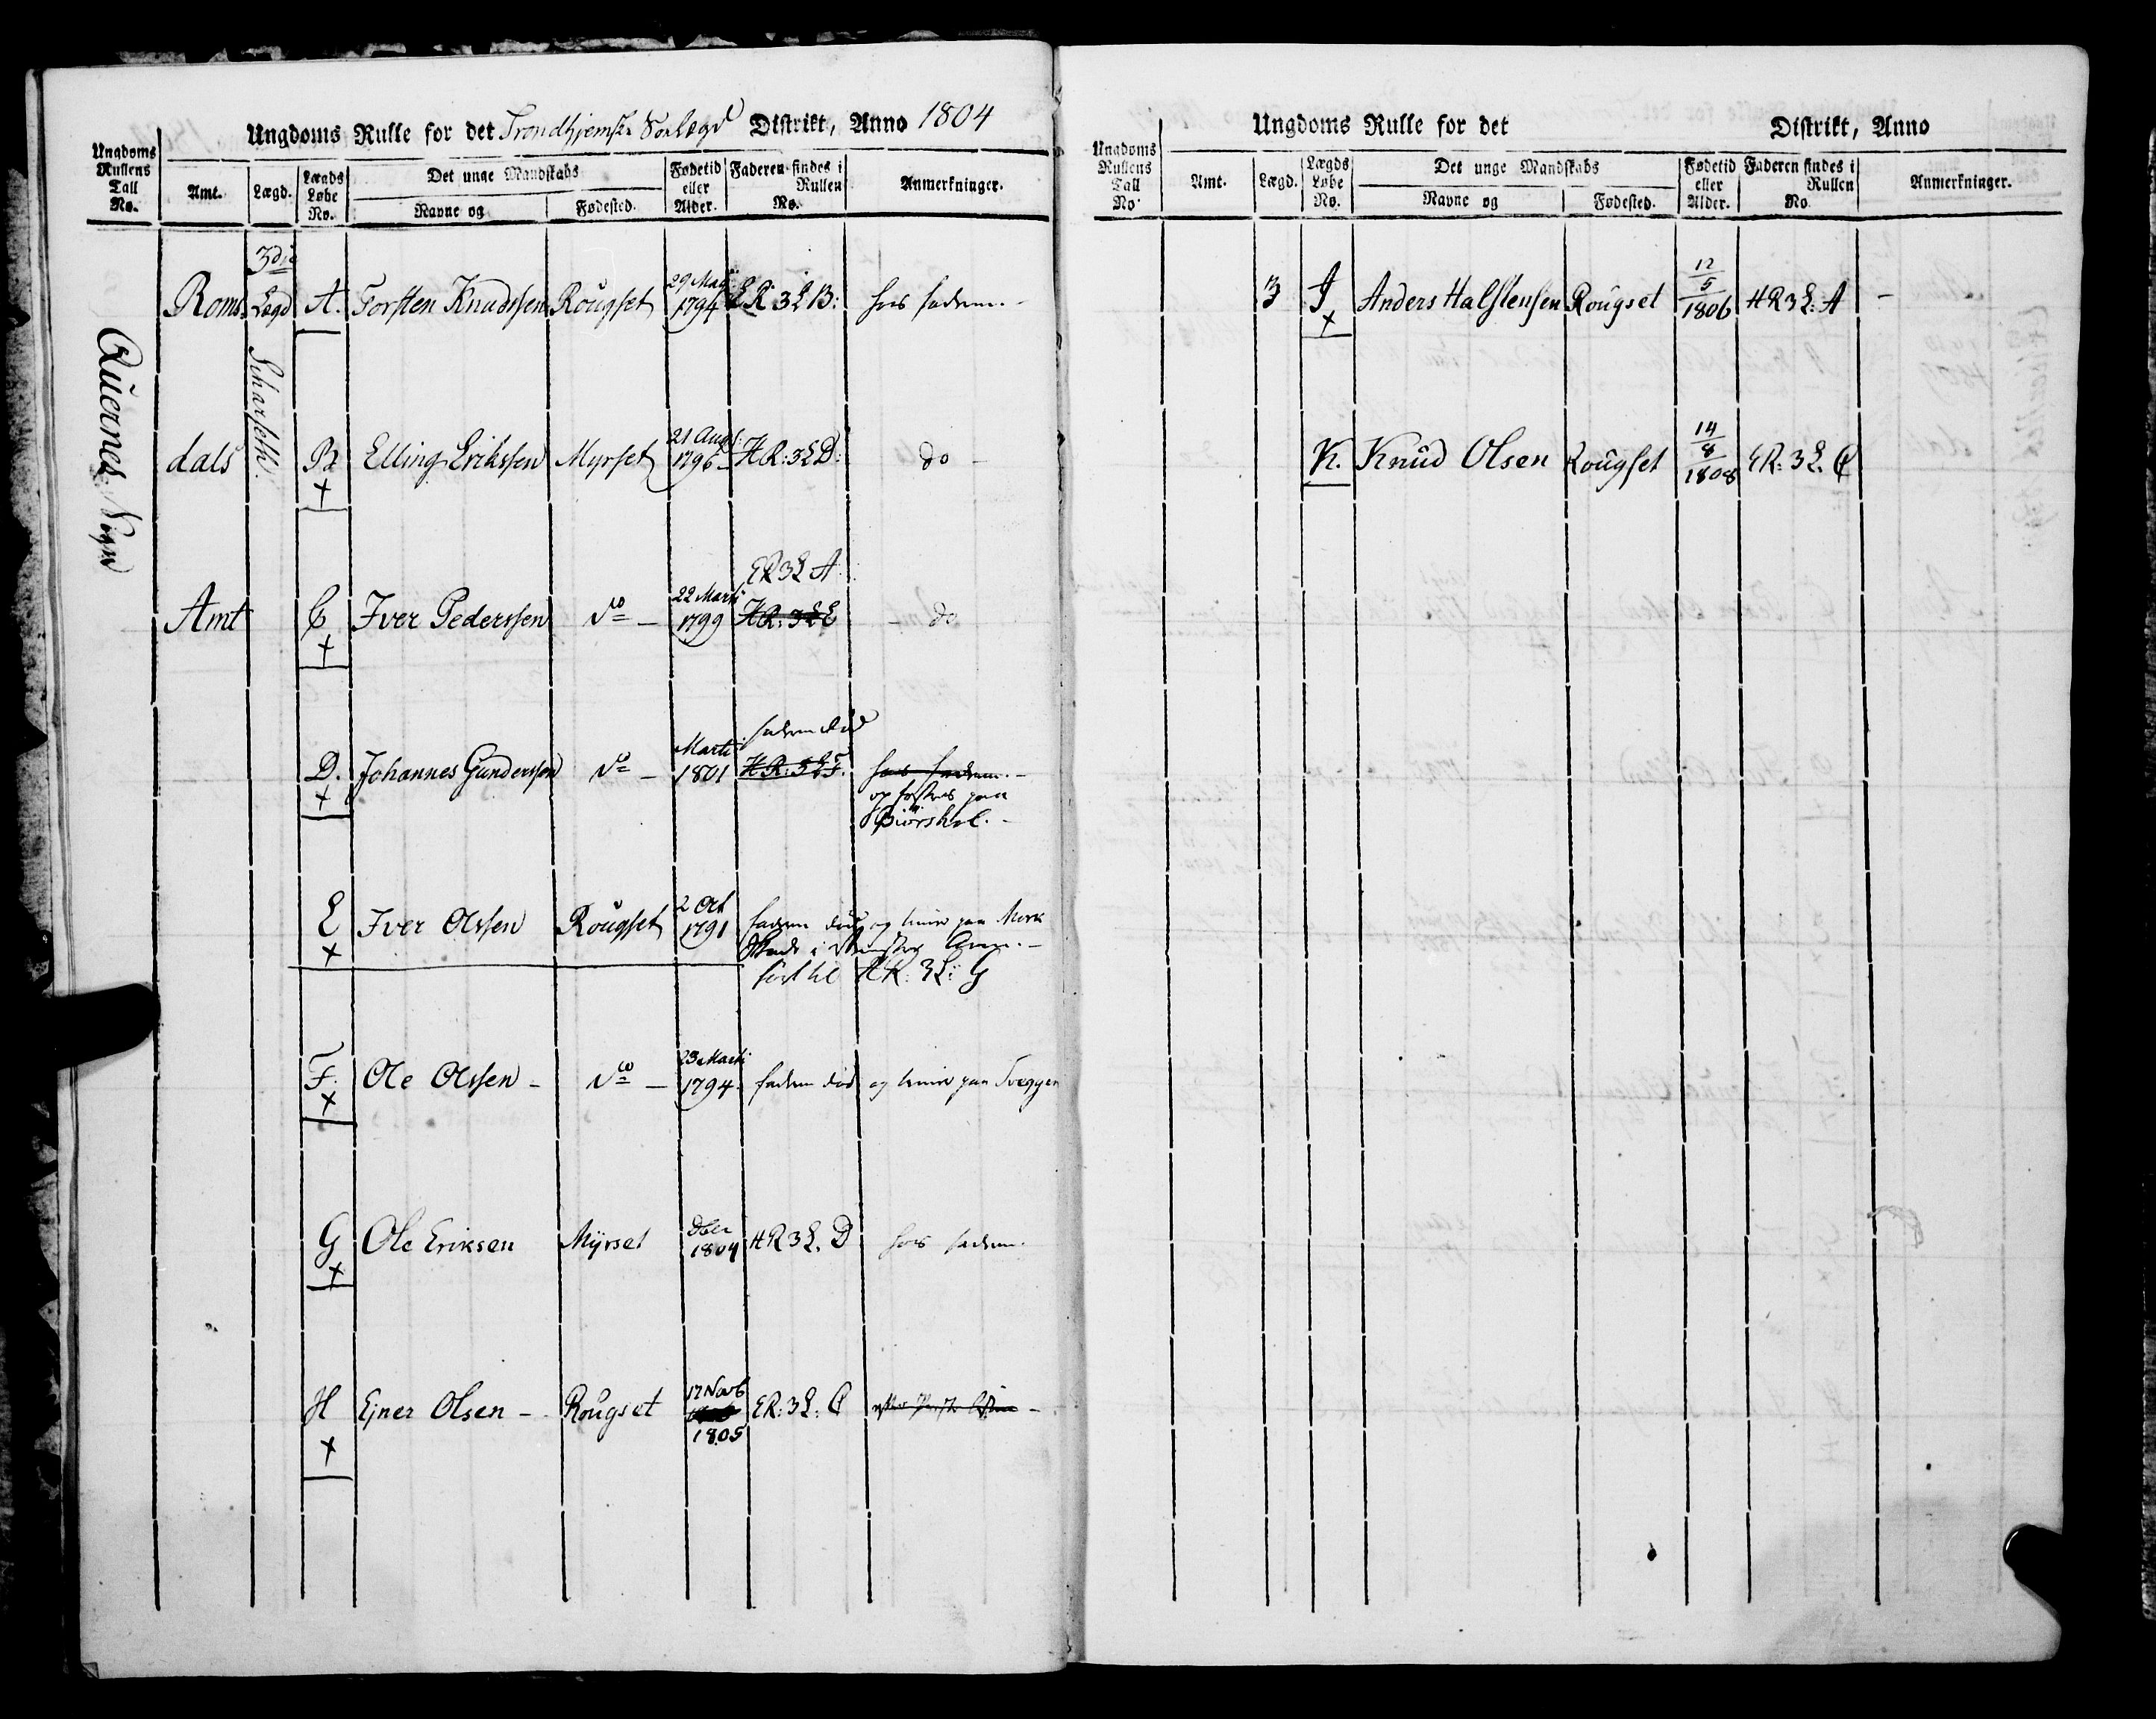 Ungdoms Rulle for det Trondhjemske Distrikt, Anno 1804
Ungdoms Rullens Tall No.
Amt.
Lægd.
Lægds Løbe No.
Det unge Mandskabs
Navne og
Fødested.
Fødetid eller Alder.
Faderen findes i Rullen No.
Anmerkninger.
Qvernes Sogn
Romsdals Amt
3die Lægd
A. Torsten Knudssen Rougset 29 Maji 1794 ER: 3 L B: hos faderen. -
B Elling Erikssen Myrset 21 Aug: 1796 HR: 3 L D: do -
+
ER 3 L A
C Iver Pederssen do - 22 Marti 1799 HR: 3 L E - do
+
faderen død
D. Johannes Gunderssen do - Marti 1801 HR: 3 L F. hos faderen. -
+ opfostres paa
E Iver Olssen Rougset 2 Oct 1791 faderen død og tiener paa
+
HR: 3 L: G
F. Ole Olssen - do - 23 Marti 1794. faderen død og tiener paa Tveggen
+
G Ole Eriksen Myrset Dber 1804 HR 3 L. D hos faderen.
+
H Ejner Olsen - Rougset 17 Novb 1805 ER: 3 L: C
+
Ungdoms Rulle for det Distrikt, Anno
Ungdoms Rullens Tall No.
Amt.
Lægd.
Lægds Løbe No.
Det unge Mandskabs
Navne og
Fødested.
Fødetid eller Alder.
Faderen findes i Rullen No
Anmerkninger.
3 I Anders Halstensen Rougset 12/5 1806 HR 3 L: A -
+
K. Knud Olsen Rougset 14/8 1808 ER: 3 L. C